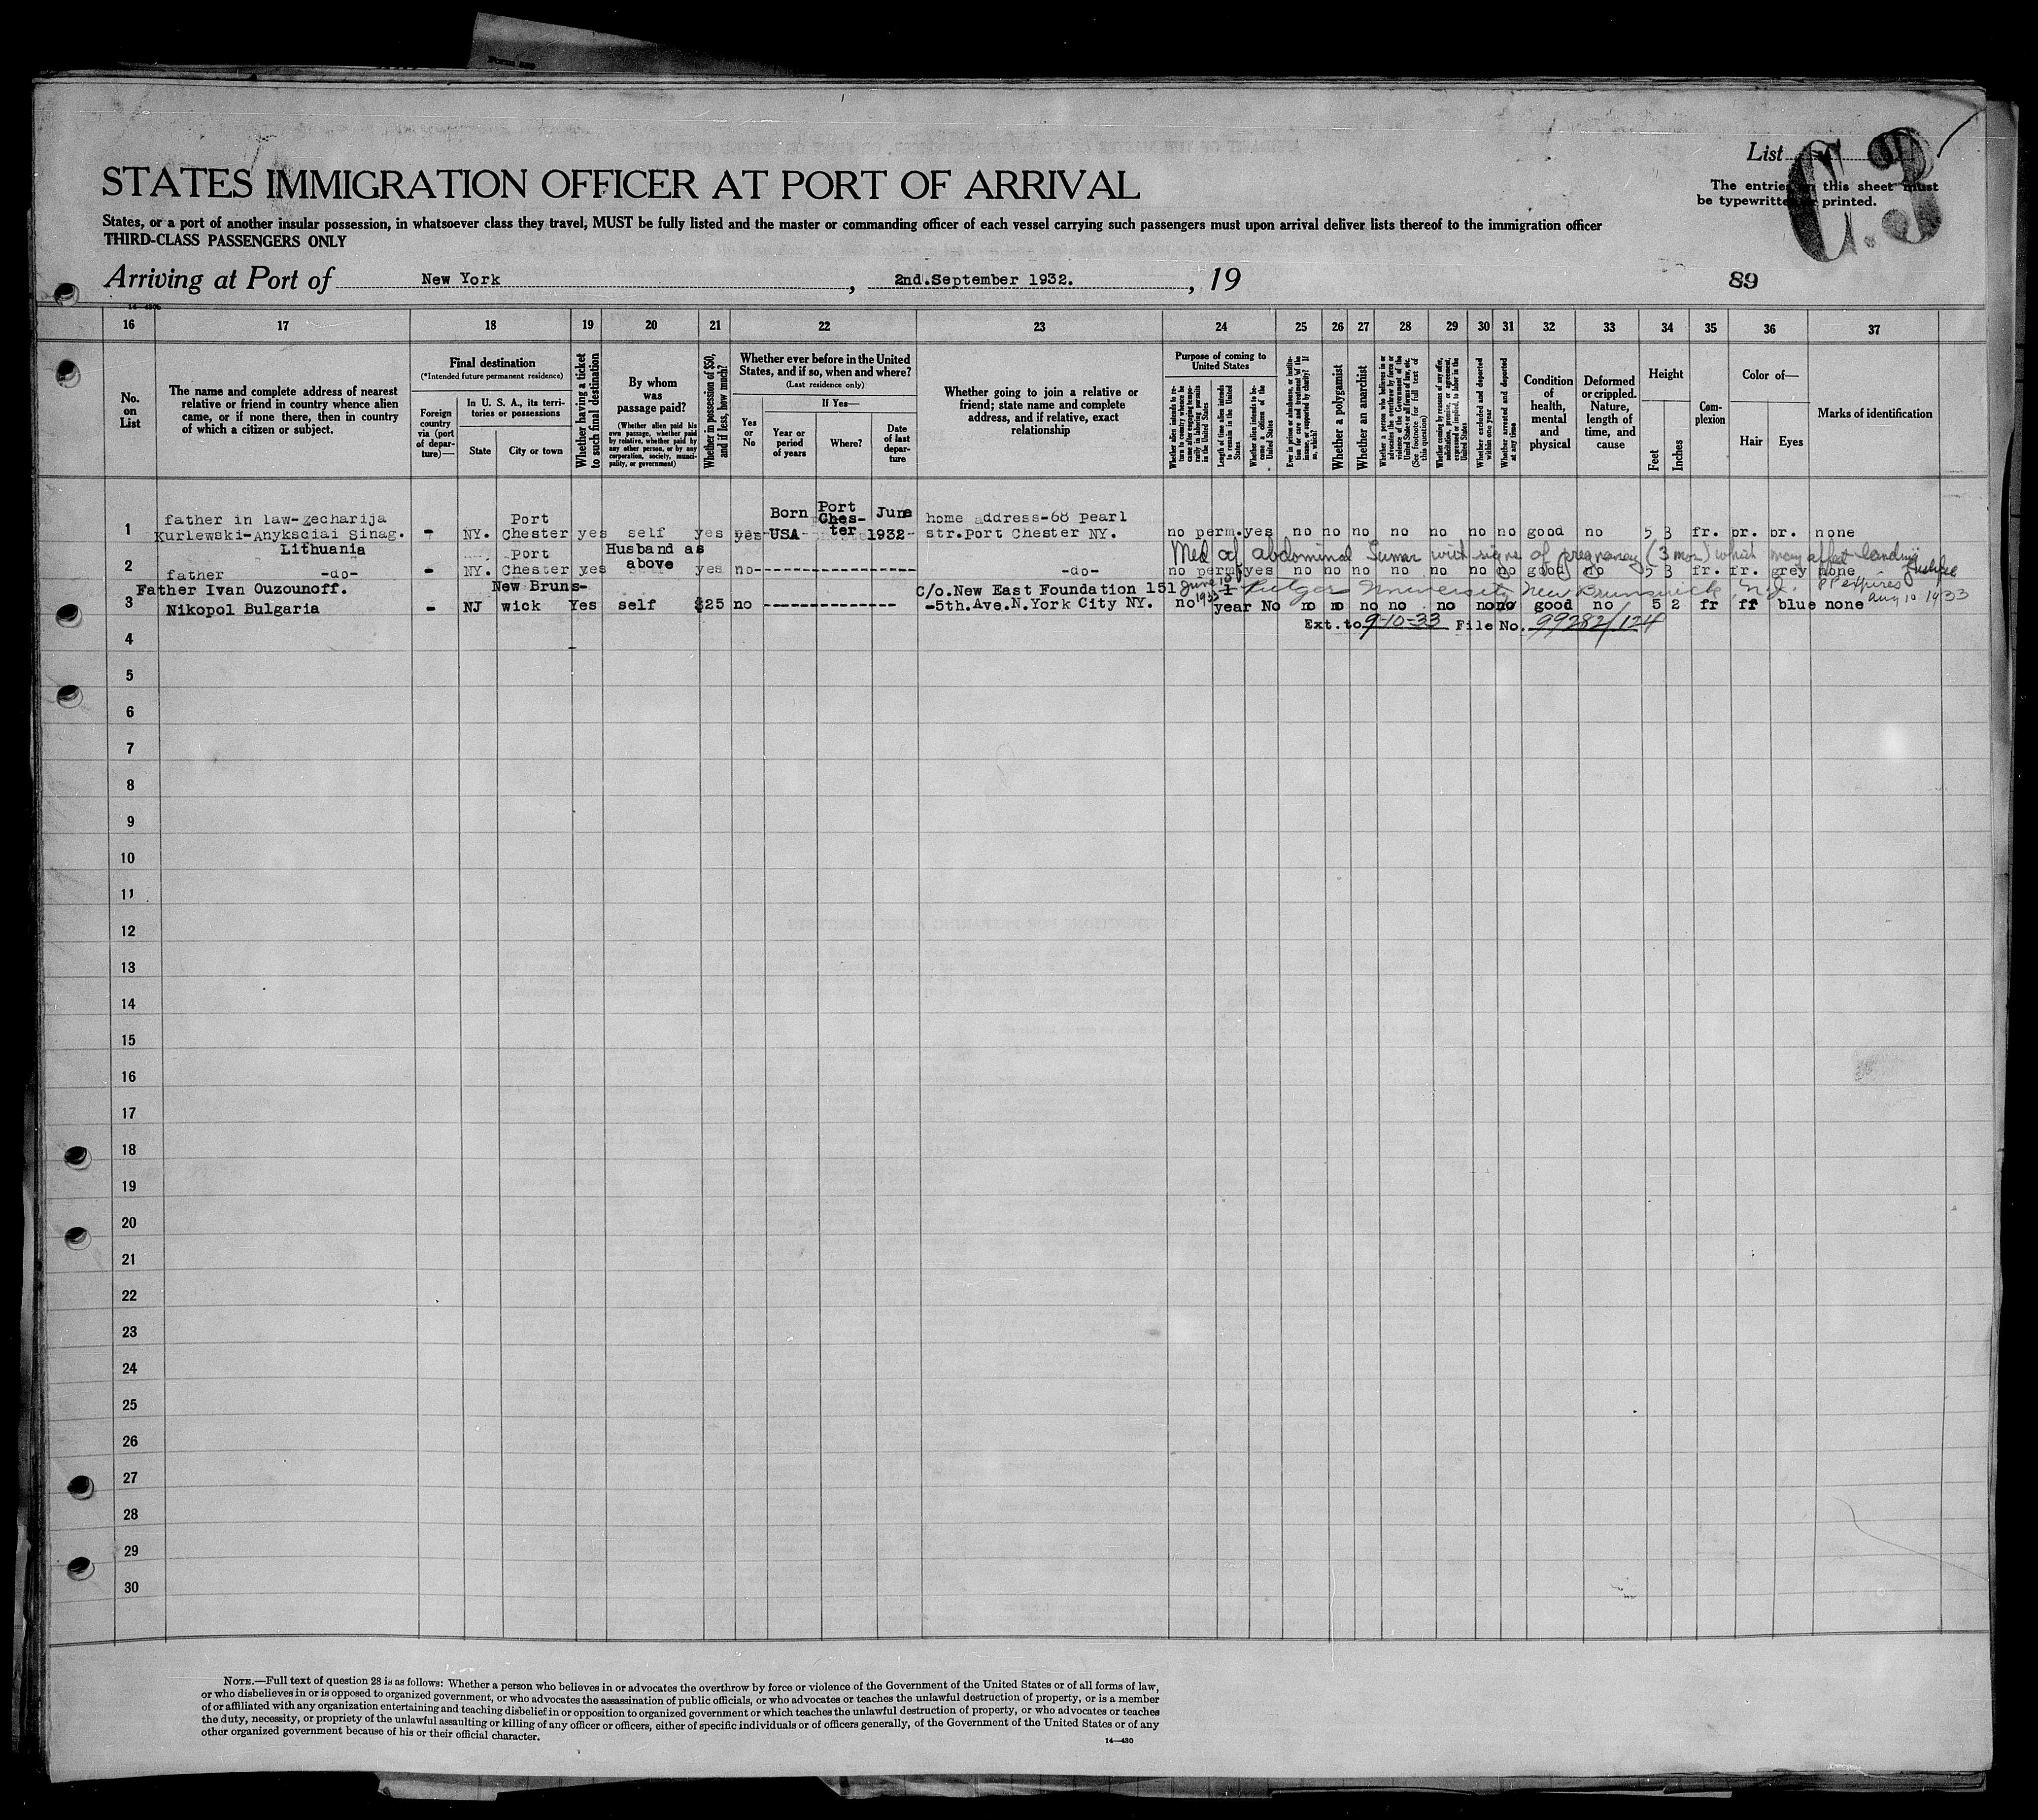 List
C.3
The entries on this sheet must
be typewritten or printed.
STATES IMMIGRATION OFFICER AT PORT OF ARRIVAL
States, or a port of another insular possession, in whatsoever class they travel, MUST be fully listed and the master or commanding officer of each vessel carrying such passengers must upon arrival deliver lists thereof to the immigration officer
THIRD-CLASS PASSENGERS ONLY
Arriving at Port of New York, 2nd.September 1932., 19
89
16 17 18 19 20 21 22 23 24 25 26 27 28 29 30 31 32 33 34 35 36 37
No. on List
The name and complete address of nearest relative or friend in country whence alien came, or if none there, then in country of which a citizen or subject.
Final destination
(*Intended future permanent residence)
Foreign country via (port of departure)—
In U. S. A., its territories or possessions
State
City or town
Whether having a ticket to such final destination
By whom was passage paid?
(Whether alien paid his own passage, whether paid by relative, whether paid by any other person, or by any corporation, society, municipality, or government)
Whether in possession of $50, and if less, how much?
Whether ever before in the United States, and if so, when and where?
(Last residence only)
Yes or No
If Yes—
Year or period of years
Where?
Date of last departure
Whether going to join a relative or friend; state name and complete address, and if relative, exact relationship
Purpose of coming to United States
Whether alien intends to return to country whence he came after engaging temporarily in laboring pursuits in the United States
Length of time alien intends to remain in the United States
Whether alien intends to become a citizen of the United States
Ever in prison or almshouse, or institution for care and treatment of the insane, or supported by charity? If so, which?
Whether a polygamist
Whether an anarchist
Whether a person who believes in or advocates the overthrow by force or violence of the Government of the United States or all forms of law, etc. (See footnote for full text of this question)
Whether coming by reasons of any offer, solicitation, promise, or agreement, expressed or implied, to labor in the United States
Whether excluded and deported within one year
Whether arrested and deported at any time
Condition of health, mental and physical
Deformed or crippled. Nature, length of time, and cause
Height
Feet
Inches
Complexion
Color of—
Hair
Eyes
Marks of identification
1 father in law-zecharija Kurlewski-Anyksciai Sinag. Lithuania - NY. Port Chester yes self yes yes Born USA Port Chester June 1932 home address-68 pearl str.port Chester NY. no perm. yes no no no no no no no good no 5 3 fr. br. br. none
Med of abdominal Tumor with signs of pregnancy (3 mos) which may affect landing
2 father -do- - NY. Port Chester yes Husband as above yes no -do- no perm yes no no no no no no no good no 5 3 fr. fr. grey none
June 10 1933 Rutgers University New Brunswick, N.J. PP expires Aug 10 1933
3 Father Ivan Ouzounoff. Nikopol Bulgaria - NJ New Brunswick Yes self $25 no C/o.New East Foundation 151 -5th.Ave.N.York City NY. no 1 year No no no no no no no no good no 5 2 fr ff blue none
Ext.to 9-10-33 File No. 99282/124
4
5
6
7
8
9
10
11
12
13
14
15
16
17
18
19
20
21
22
23
24
25
26
27
28
29
30
NOTE.—Full text of question 28 is as follows: Whether a person who believes in or advocates the overthrow by force or violence of the Government of the United States or of all forms of law,
or who disbelieves in or is opposed to organized government, or who advocates the assassination of public officials, or who advocates or teaches the unlawful destruction of property, or is a member
of or affiliated with any organization entertaining and teaching disbelief in or opposition to organized government or which teaches the unlawful destruction of property, or who advocates or teaches
the duty, necessity, or propriety of the unlawful assaulting or killing of any officer or officers, either of specific individuals or of officers generally, of the Government of the United States or of any
other organized government because of his or their official character.
14—430